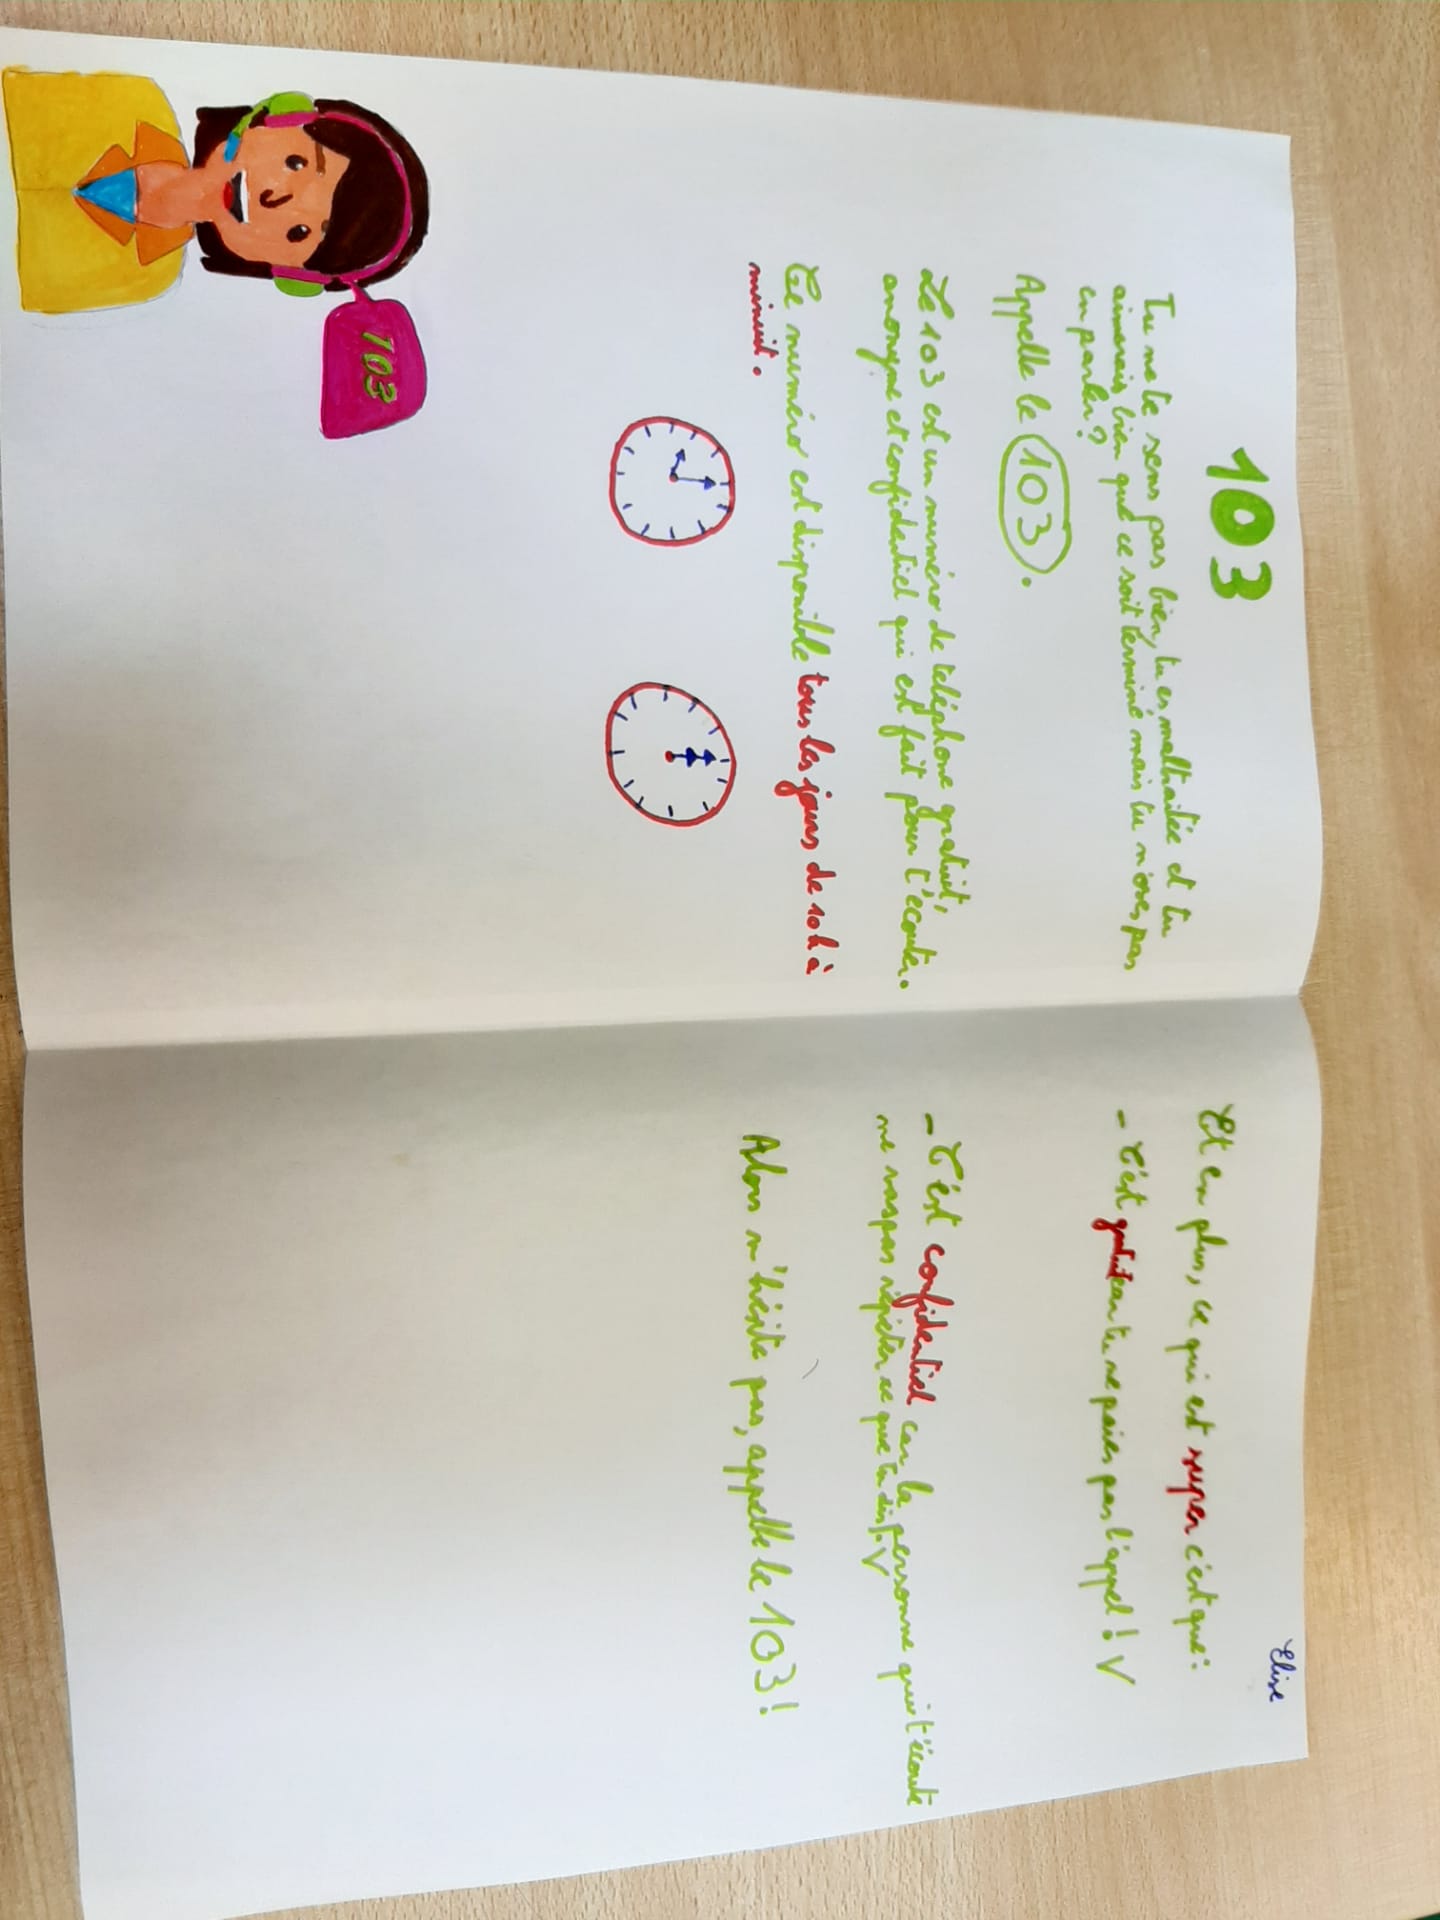 103
Tu ne te sens pas bien, tu es maltraitée et tu
aimerais bien que ce soit terminé mais tu n'oses pas
en parler?
Appelle le 103.
Le 103 est un numéro de téléphone gratuit,
anonyme et confidentiel qui est fait pour t'écouter.
Ce numéro est disponible tous les jours de 10h à
minuit.
103
Elise
Et en plus, ce qui est super c'est que:
- C'est gratuit car tu ne paies pas l'appel! V
- C'est confidentiel car la personne qui t'écoute
ne vas pas répéter ce que tu dis. V
Alors n'hésite pas, appelle le 103!